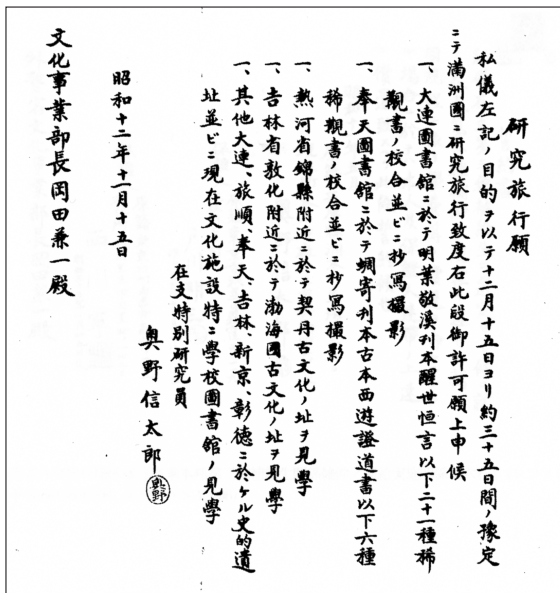 研究旅行願
私儀左記ノ目的ヲ以テ十二月十五日ヨリ約三十五日間ノ豫定
ニテ満洲國ニ研究旅行致度右此段御許可願上申候
一、大連圖書館ニ於テ明葉敬溪刊本醒世恒言以下二十一種稀
觀書ノ校合並ビニ抄寫撮影
一、奉天圖書館ニ於テ蜩寄刊本古本西遊證道書以下六種
稀觀書ノ校合並ビニ抄寫撮影
一、熱河省錦縣附近ニ於テ契丹古文化ノ址ヲ見學
一、吉林省敦化附近ニ於テ渤海國古文化ノ址ヲ見學
一、其他大連、旅順、奉天、吉林、新京、彰德ニ於ケル史的遺
址並ビニ現在文化施設特ニ學校圖書館ノ見學
在支特別研究員
奥野信太郎
奥野
昭和十二年十一月十五日
文化事業部長岡田兼一殿